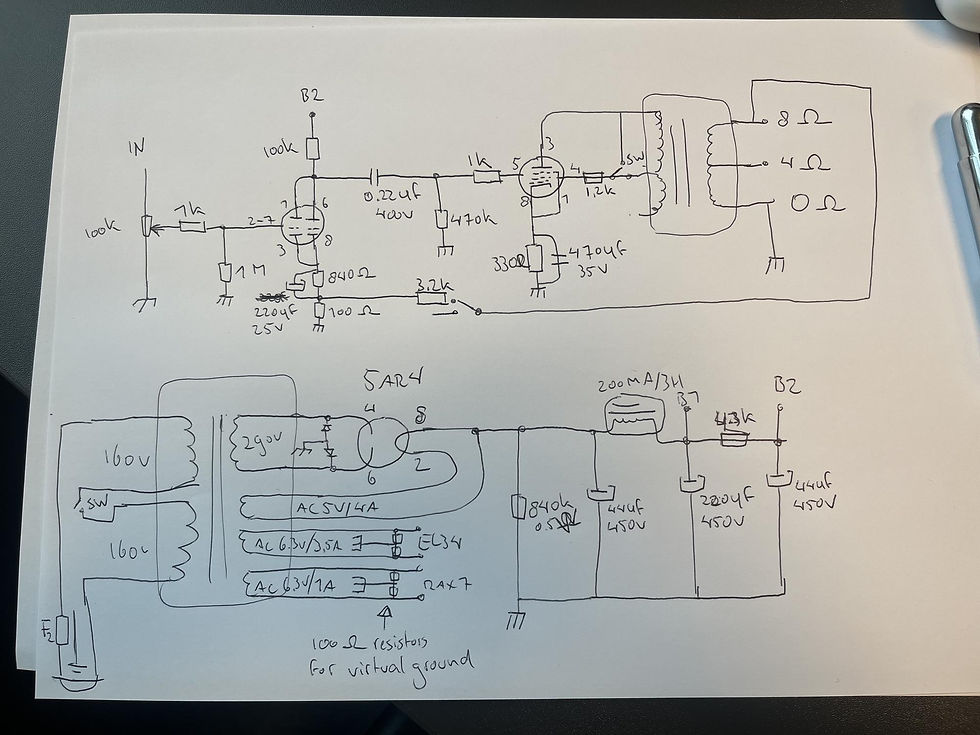 B2
IN
100k
100k
1k
2-7
1
6
3
8
1M
840Ω
220uF
25V
100Ω
0.22uF
400V
470k
1k
5
3
4
8
1
1,2k
SW
330Ω
470uF
35V
3.2k
8 Ω
4 Ω
0 Ω
5AR4
4
8
6
2
160V
SW
160V
290V
AC 5V/4A
AC 6.3V/3,5A
EL34
AC 6.3V/1A
F2
100 Ω resistors
for virtual ground
840k
44uF
450V
200MA/3H
B1
220uF
450V
B2
44uF
450V